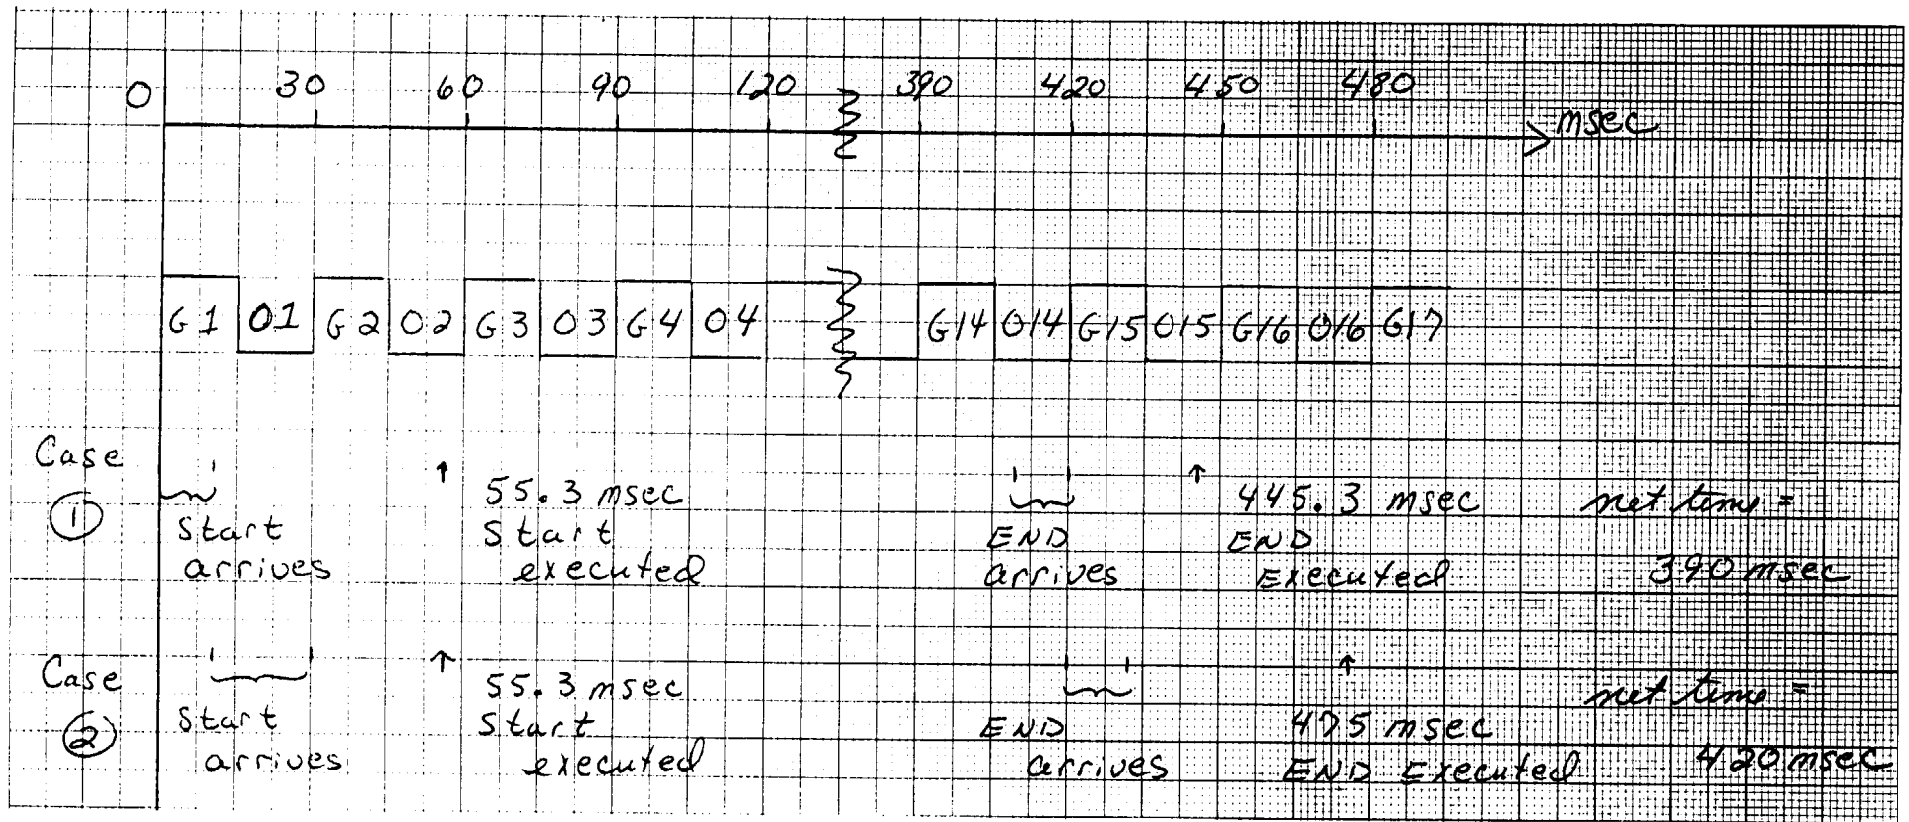 0 30 60 90 120 390 420 450 480
msec
G1 O1 G2 O2 G3 O3 G4 O4 G14 O14 G15 O15 G16 O16 G17
Case
①
Start
arrives
55.3 msec
Start
executed
END
arrives
445.3 msec
END
Executed
net time =
390 msec
Case
②
Start
arrives
55.3 msec
Start
executed
END
arrives
475 msec
END Executed
net time =
420 msec